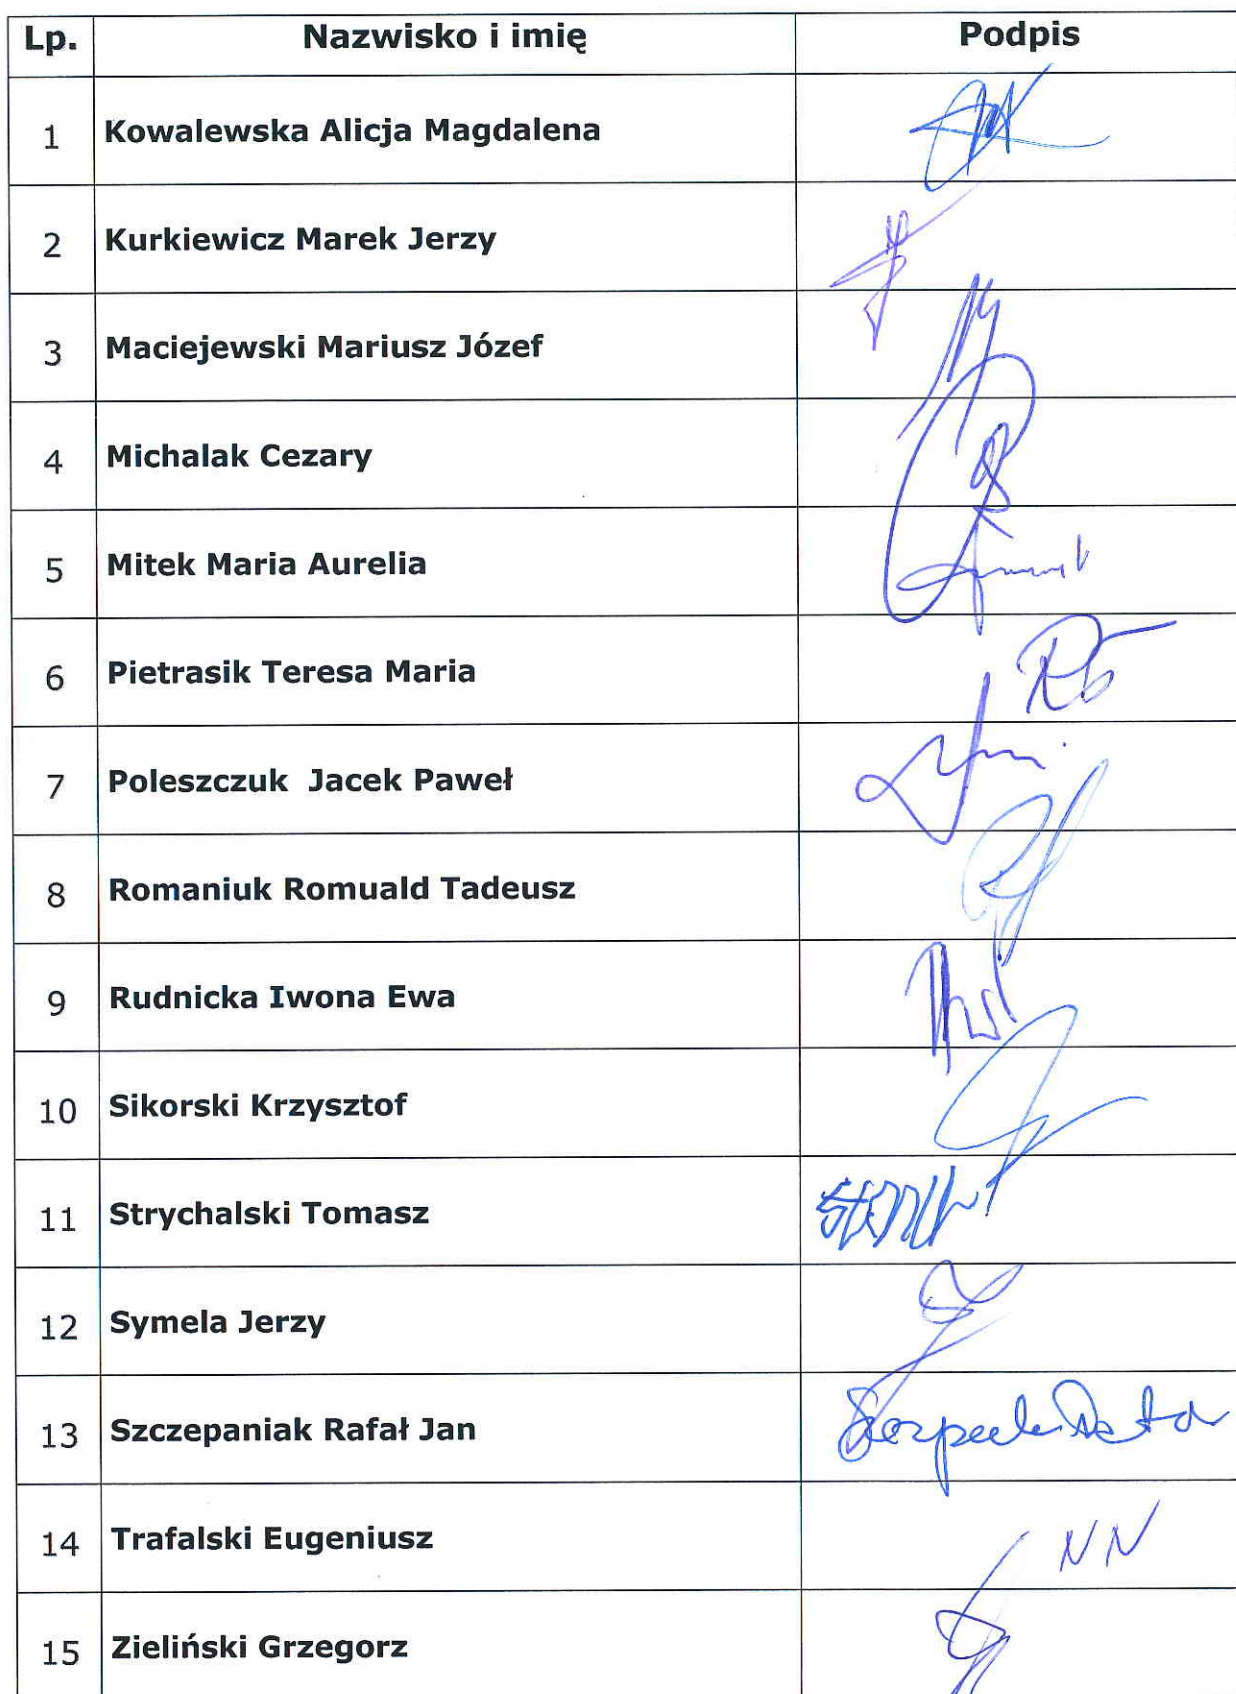 Lp. Nazwisko i imię Podpis
1 Kowalewska Alicja Magdalena
2 Kurkiewicz Marek Jerzy
3 Maciejewski Mariusz Józef
4 Michalak Cezary
5 Mitek Maria Aurelia
6 Pietrasik Teresa Maria
7 Poleszczuk Jacek Paweł
8 Romaniuk Romuald Tadeusz
9 Rudnicka Iwona Ewa
10 Sikorski Krzysztof
11 Strychalski Tomasz
12 Symela Jerzy
13 Szczepaniak Rafał Jan
14 Trafalski Eugeniusz NN
15 Zieliński Grzegorz